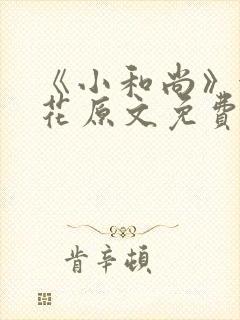 《小和尚》
花原文免費
肯辛頓